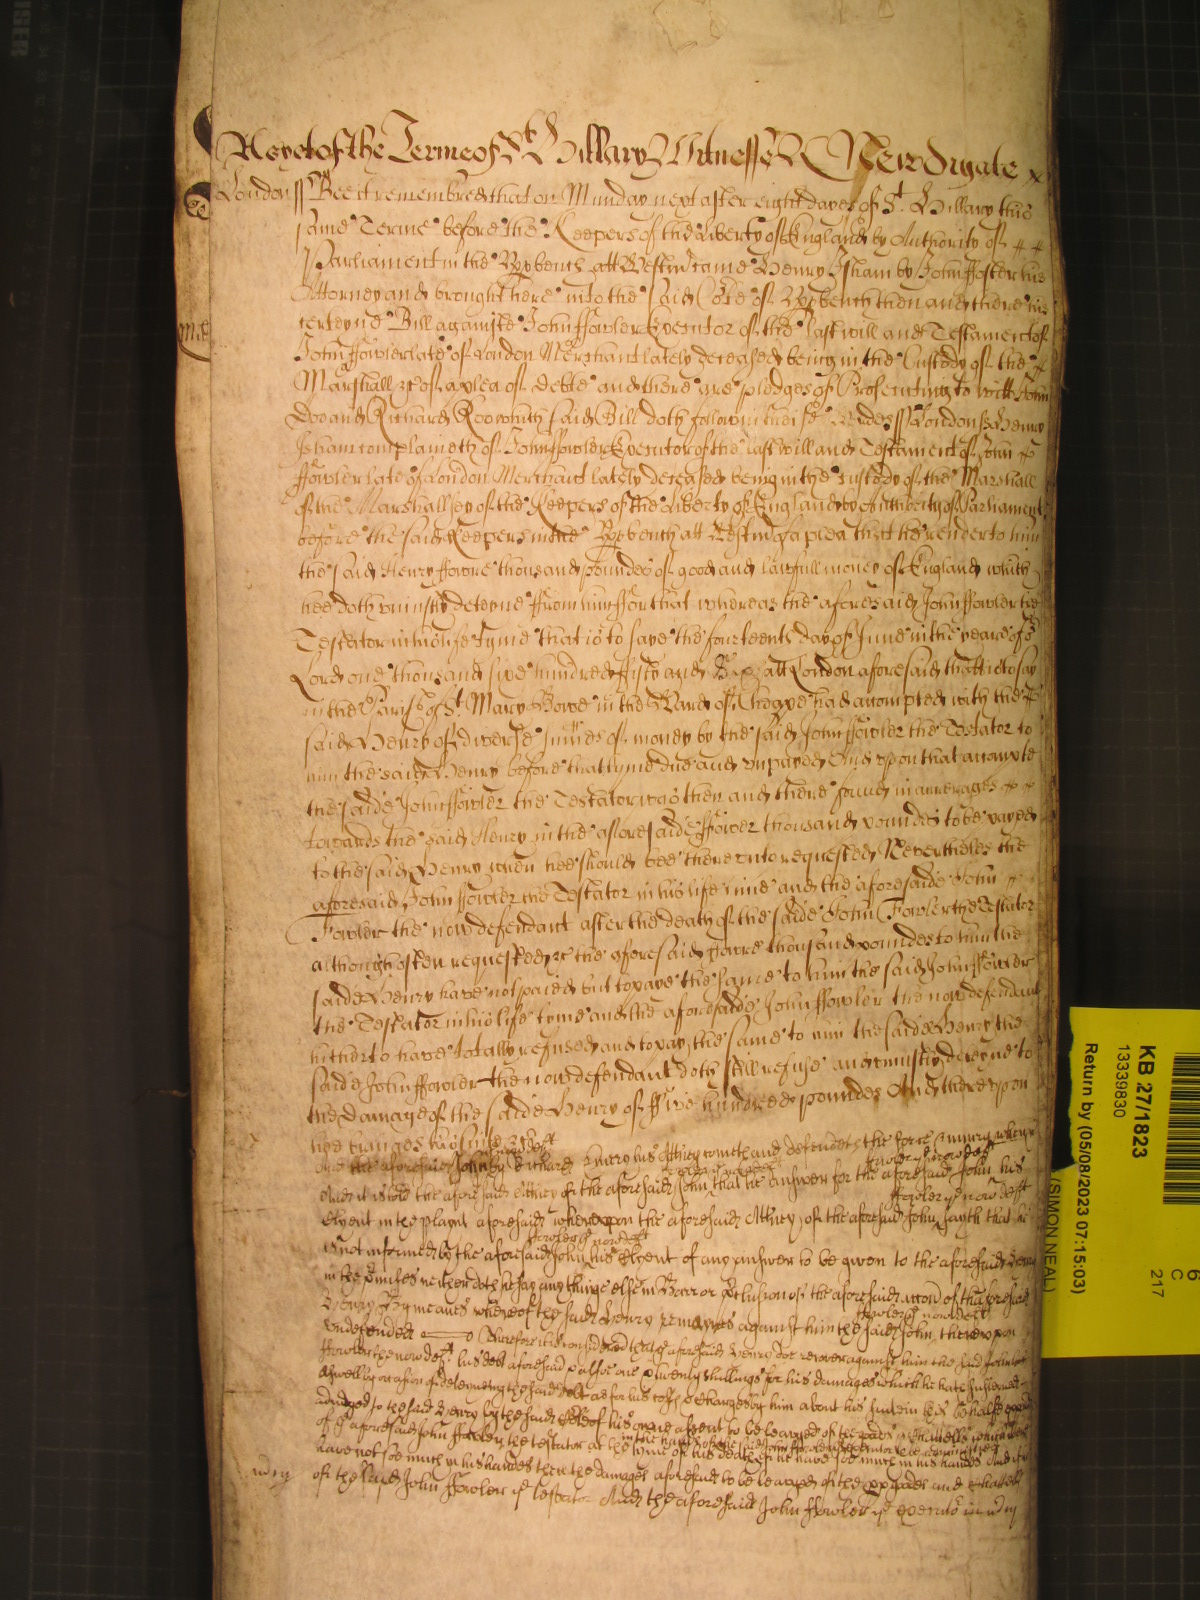 Yet of the Terme of St Hillary Witnesse R Newdigate
London ss Bee it remembred that on Munday next after eight dayes of St. Hillary this
same Terme before the Keepers of the Liberty of England by Authority of
Parliament in the Upp bench att Westm came Henry Isham by John Foster his
Attorney and brought here into the said Cort of Upp bench then and there his
certeyne Bill against John ffowler Executor of the last will and Testament of
John ffowler late of London Merchant lately deceased being in the Custody of the
Marshall &c of a plea of debte and there are pledges of Prosecuting to witt John
Doo and Richard Roo which said Bill doth followe in theise wordes ss London ss Henry
Isham complaineth of John ffowler Executor of the last will and Testament of John
ffowler late of London Merchant lately deceased being in the custody of the Marshall
of the Marshallsey of the Keepers of the Liberty of England by Authority of Parliament
before the said Keepers in the Upp bench att Westm of a plea that he render to him
the said Henry ffowre thousand poundes of good and lawfull money of England which
hee doth uniustly deteyne from him ffor that whereas the aforesaid John ffowler the
Testator in his life tyme that is to saye the fourteenth day of June in the yeare of or
Lord one thousand sixe hundred ffifty and Sixe att London aforesaid that is to say
in the Parish of St. Mary Bowe in the Ward of Cheape had accompted with the
said Henry of diverse summes of money by the said John ffowler the Testator to
him the said Henry before that tyme due and unpayed And upon that accompte
the saide John ffowler the Testator was then and there found in arrerages
towards the said Henry in the aforesaide ffower thousand poundes to be payed
to the said Henry when hee should bee thereunto requested Neverthelesse the
aforesaid John ffowler the Testator in his life time and the aforesaide John
Fowler the now defendant after the death of the saide John Fowler the Testator
although often requested &c the aforesaid ffowre thousand poundes to him the
saide Henry have not paied but to paye the same to him the said John ffowler
the Testator in his life tyme and the aforesaide John ffowler the now defendant
hitherto have totally refused and to pay the same to him the saide Henry the
saide John ffowler the now defendant doth still refuse and uniustly deteyne to
the damage of the saide Henry of ffive hundred poundes And thereupon
hee bringes his suite &c
And the aforesaid John by Richard his Attney cometh and defendeth the force & iniury when &c
ffowler ye now deft
And it is told the aforesaid Attney of the aforesaid John that he answer for the aforesaid John his
ffowler ye now deft
Clyent in the playnt aforesaid whereupon the aforesaid Attney of the aforesaid John sayth that he
ffowler ye now deft
is not informed by the aforesaid John his Clyent of any answer to be given to the aforesaid Henry
in the pmises neither doth he say any thinge else in Barr or pclusion of the aforesaid accon of the aforesaid
ffowler ye now deft
Henry By meanes whereof the said Henry remaynes against him the said John thereupon
undefended Therefore it is considered that ye aforesaid Henry doe recover against him the said John
ffowler the now deft his debt aforesaid & alsoe twenty shillings for his damages which he hath susteined
aswell by occasion of deteyneing the said debt as for his costs & charges by him about his suite in this behalfe
adiudged to the said Henry by the said Court of his owne assent to be leavyed of the goods & Chattells which were
of ye aforesaid John ffowler the testator at the tyme of his death if he have soe much in his handes And if he
have not soe much in his handes then the damages aforesaid to be leavyed of the pper goodes and chattells
of the said John ffowler ye testator And the aforesaid John ffowler ye executor in mcy
KB 27/1823
13339830
Return by (05/08/2023 07:15:03)
(SIMON NEAL)
C
217